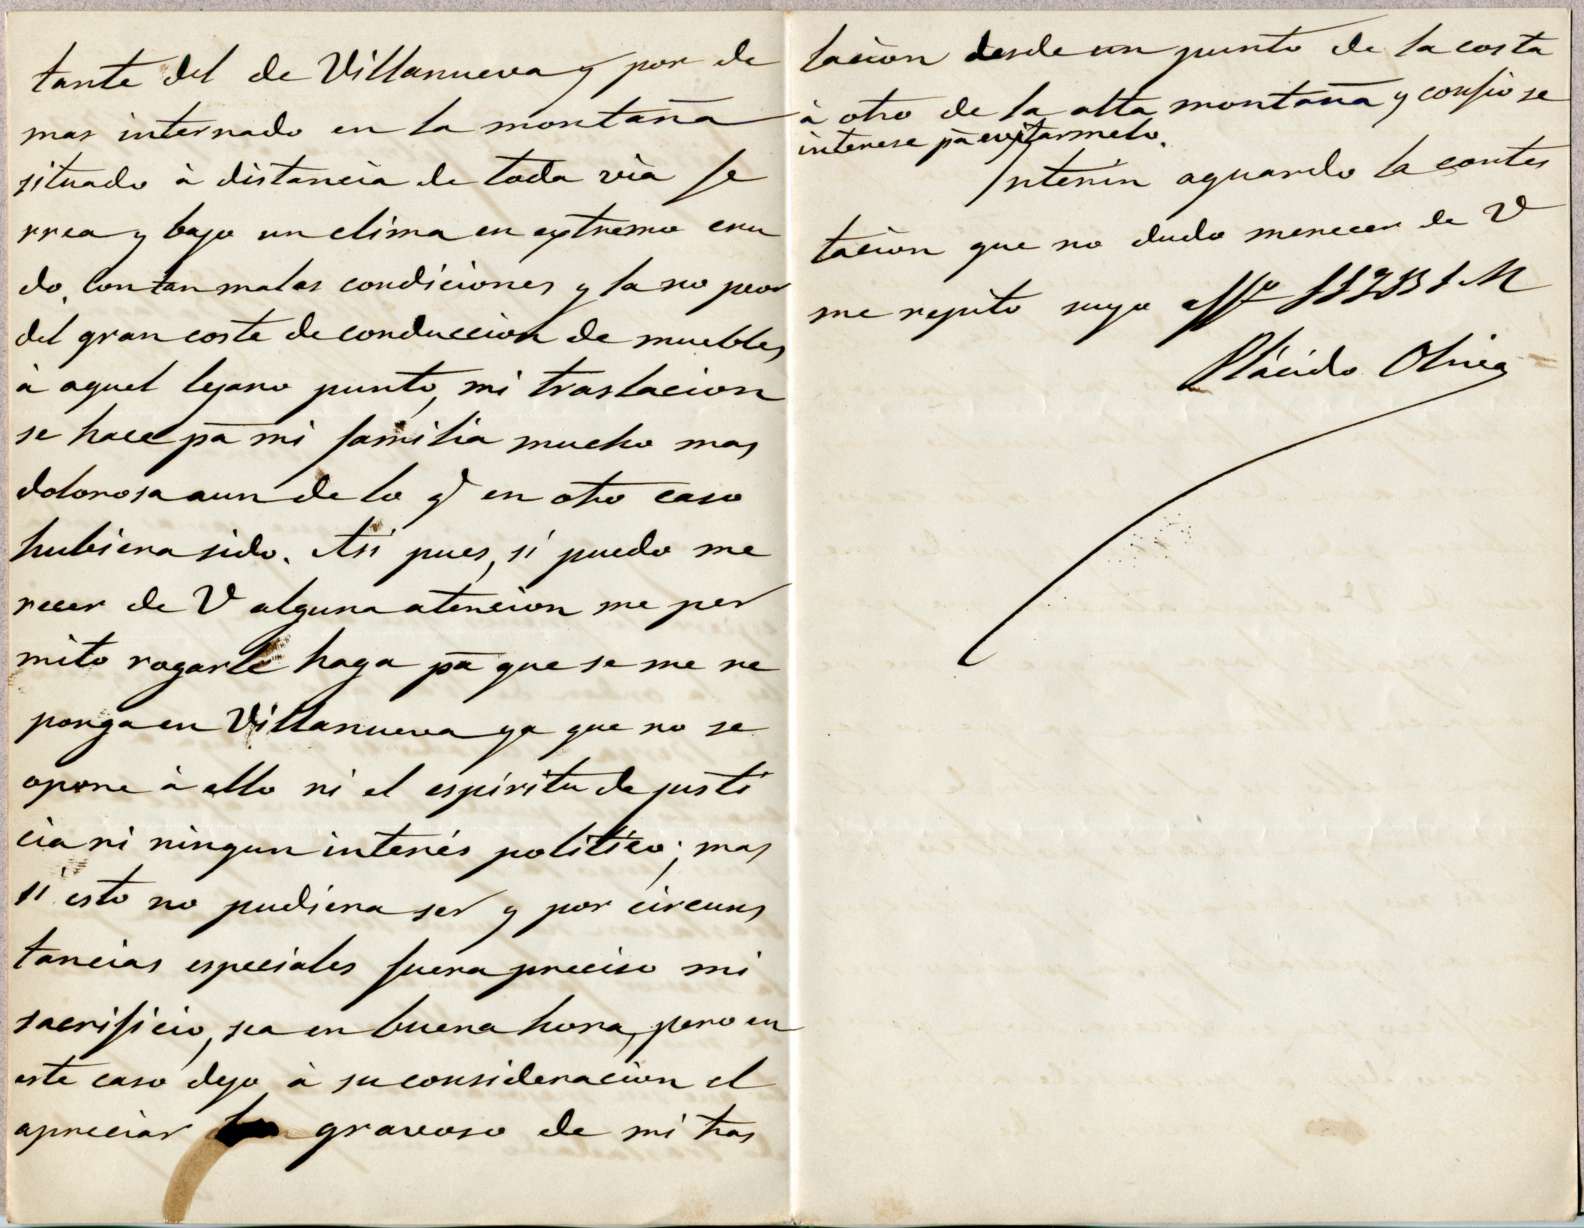 tante del de Villanueva y por de
mas internado en la montaña
situado à distancia de toda via fe
rrea y bajo un clima en extremo cru
do. Con tan malas condiciones y la no peor
del gran coste de conduccion de muebles
à aquel lejano punto, mi traslacion
se hace pa mi familia mucho mas
dolorosa aun de lo q.e en otro caso
hubiera sido. Asi pues, si puedo me
recer de V alguna atencion me per
mito rogarle haga pa que se me re
ponga en Villanueva ya que no se
opone à ello ni el espíritu de justi
cia ni ningun interés politico; mas
si esto no pudiera ser y por circuns
tancias especiales fuera preciso mi
sacrificio, sea en buena hora, pero en
este caso dejo à su consideracion el
apreciar lo gravoso de mi tras
lacion desde un punto de la costa
à otro de la alta montaña y confio se
interese pa evitarmelo.
Interin aguardo la contes
tacion que no dudo merecer de V
me repito suyo affmo SS Q B S M
Plácido